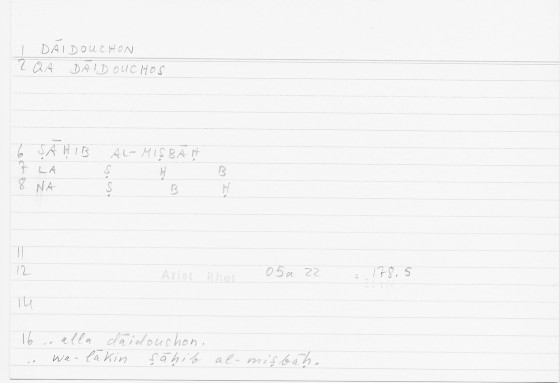 1 DĀIDOUCHON
2 QA DĀIDOUCHOS
6 ṢĀḤIB AL-MIṢBĀḤ
7 LA Ṣ Ḥ B
8 NA Ṣ B Ḥ
11
12 Arist Rhet 05a 22 = 178.5
14
16 .. alla dāidouchon.
.. wa-lākin ṣāḥib al-miṣbāḥ.